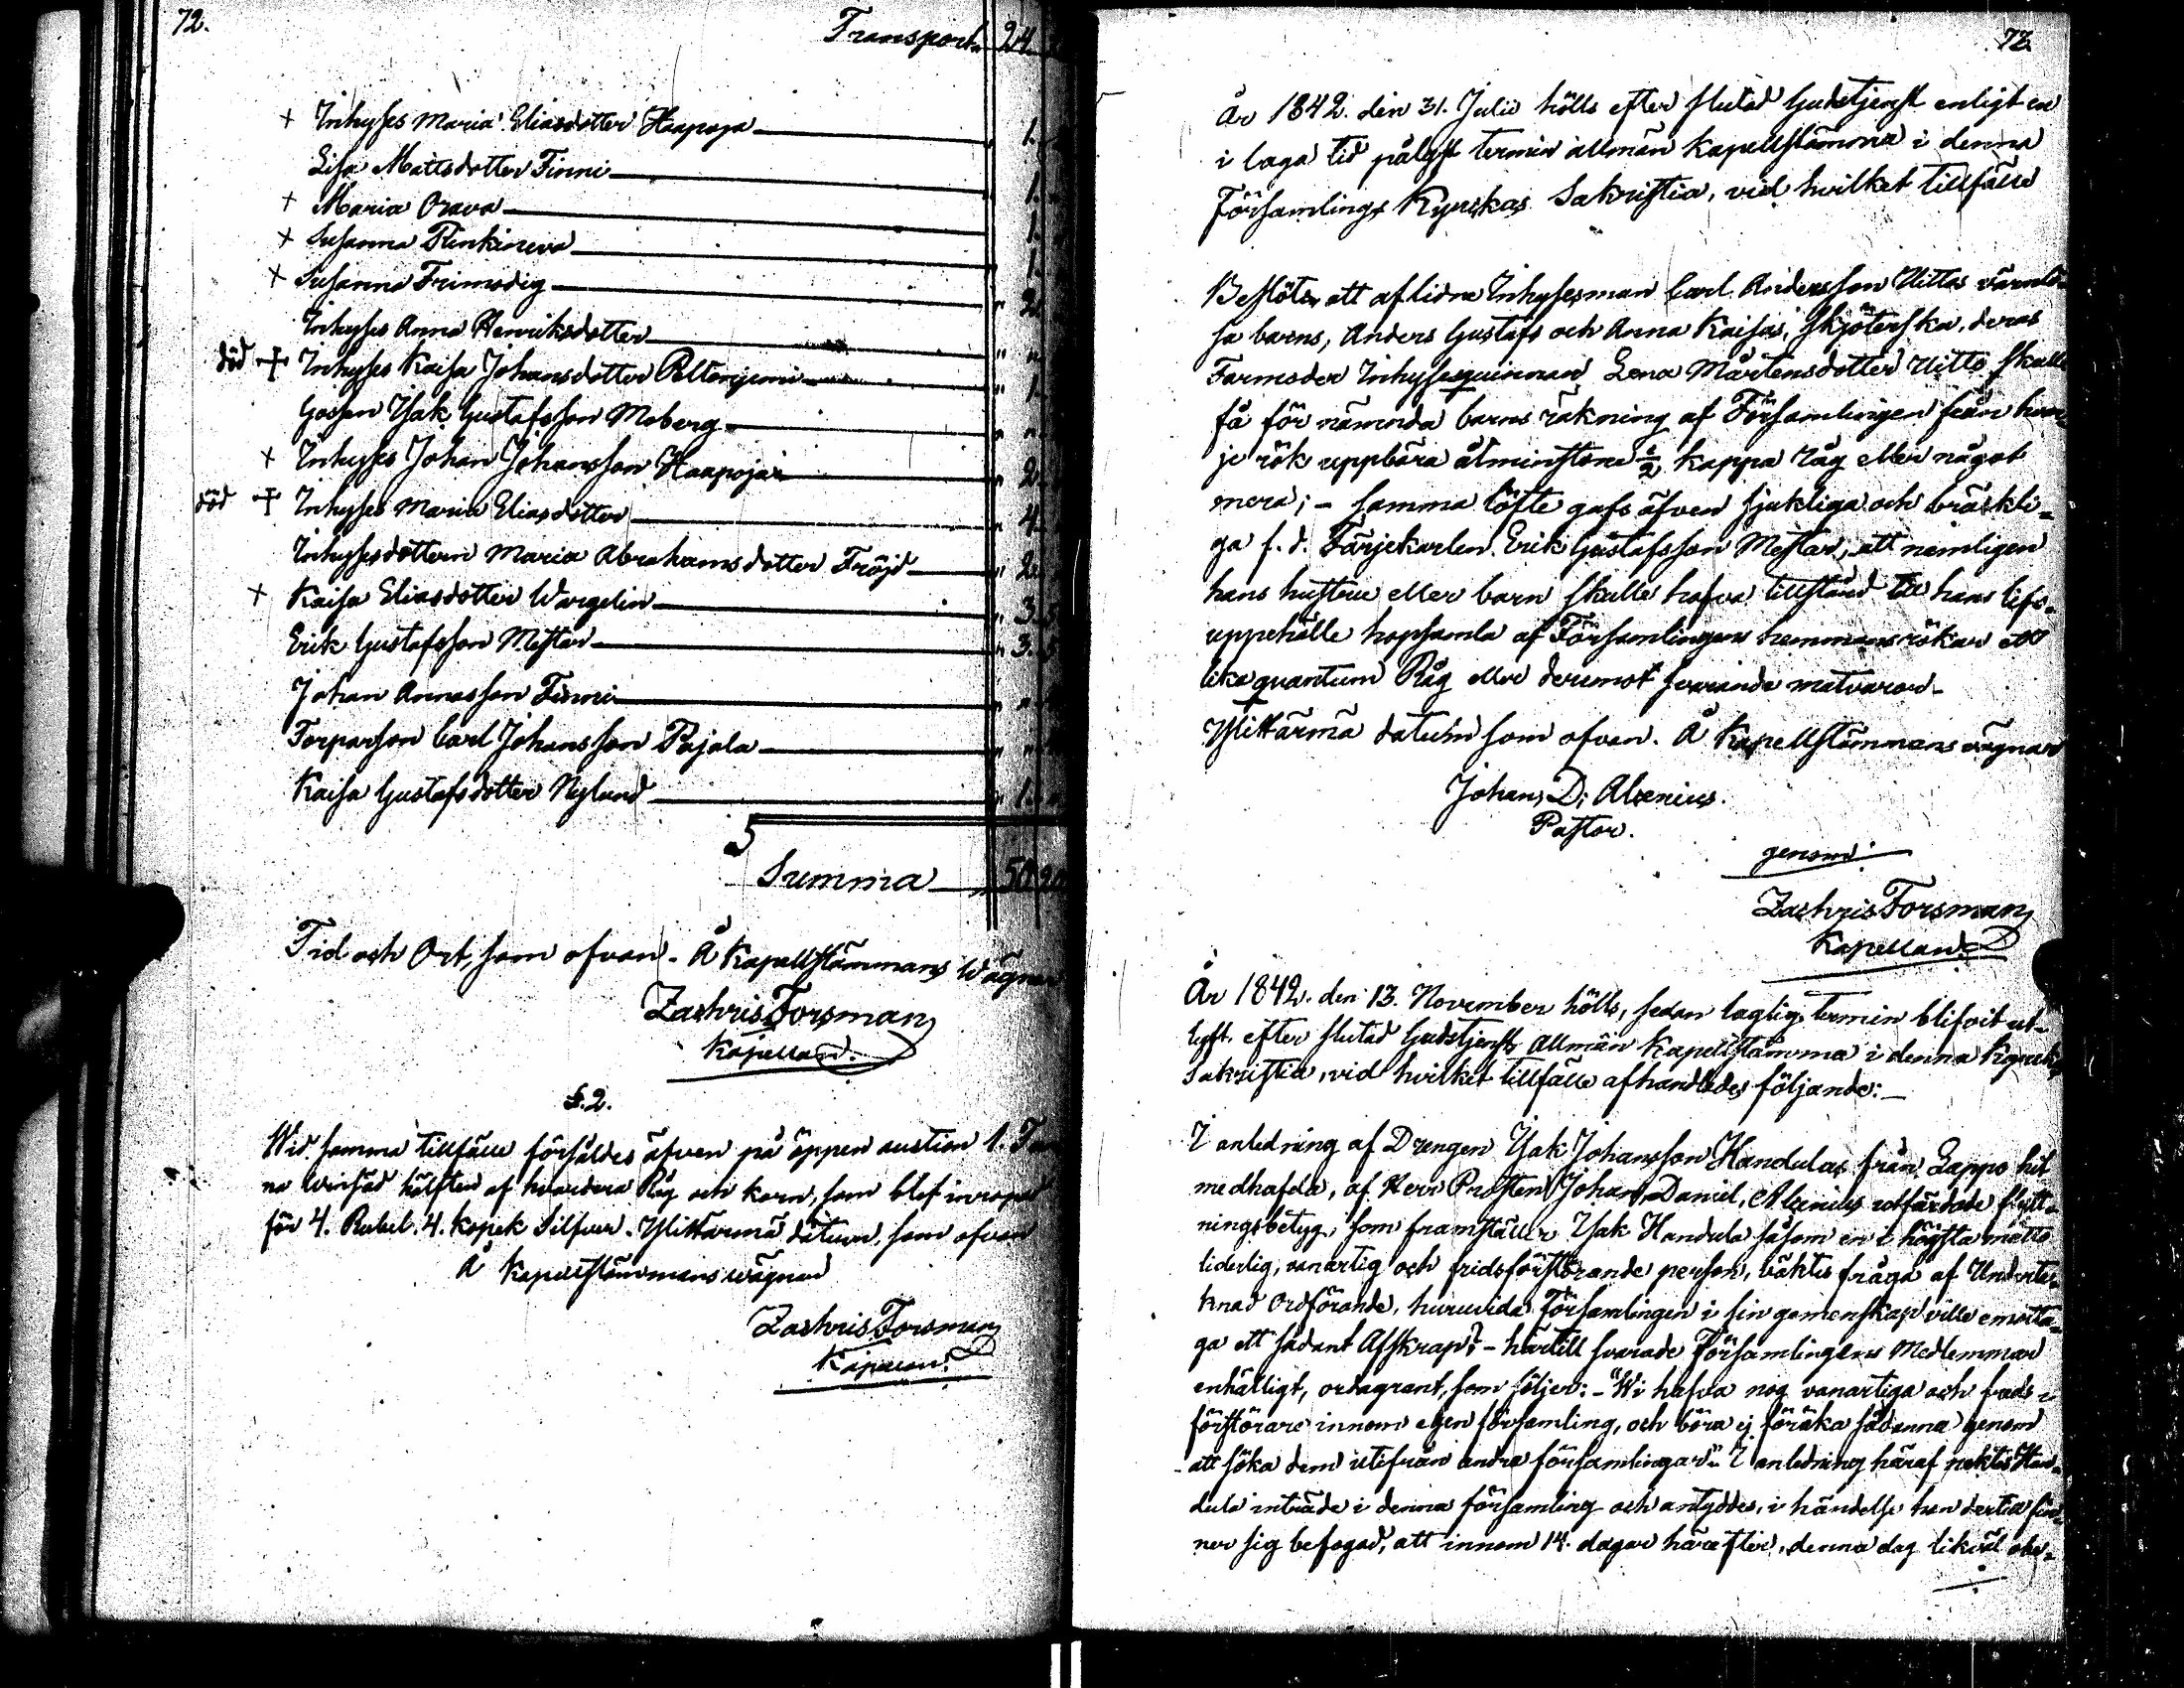 72.
Transport. 24
+ Inhyses Maria Eliasdotter Haapoja 1.
Lisa Mattsdotter Finni 1.
+ Maria Orava 1.
+ Susanna Renkineva 1.
+ Susanna Frimodig 2.
Inhyses Anna Henriksdotter " "
död + Inhyses Kaisa Johansdotter Peltoniemi " 1.
Gossen Isak Gustafsson Moberg " "
+ Inhyses Johan Johansson Haapoja " 2.
död + Inhyses Maria Eliasdotter " 4.
Inhysesdottern Maria Abrahamsdotter Fröjd " 2.
+ Kaisa Eliasdotter Wargelin " 3. 5
Erik Gustafsson Mestar " 3. 5
Johan Annasson Finni " "
Torparson Carl Johansson Pajala " "
Kaisa Gustafsdotter Nylund " 1.
Summa 50 20
Tid och Ort, som ofvan. Å Kapellstämmans Wägnar
Zachris Forsman
Kapellan.
§. 2.
Wid samma tillfälle försåldes äfven på öppen auction 1. Tun
na Winsäd hälften af hvardera Råg och korn, som blef inropad
för 4. Rubel. 4. kopek Silfver. Ylistarmä datum, som ofvan
Å Kapellstämmans wägnar
Zachris Forsman
Kapellan.
72.
År 1842. den 31. Julii hölls efter slutad Gudstjenst enligt en
i laga tid pålyst termin allmän Kapellstämma i denna
Församlings Kyrckas Sakristia, vid hvilket tillfälle
Beslöts, att aflidne Inhysesman Carl Andersson Uittos värnlö-
sa barns, Anders Gustafs och Anna Kaisas, skjöterska, deras
Farmoder Inhysesquinnan Lena Mårtensdotter Uitto skulle
få för nämnda barns räkning af Församlingen från hvar-
je rök uppbära åtminstone ½ kappa råg eller något
mera; - samma löfte gafs äfven sjukliga och bräckli-
ga f. d. Färjekarlen Erik Gustafsson Mestar, att nemligen
hans hustru eller barn skulle hafva tillstånd till hans lifs-
uppehälle hopsamla af Församlingens hemmansrökar ett
lika quantum Råg eller deremot svarande matvaror.
Ylittärmä datum som ofvan. Å Kapellstämmans vägnar
Johan D: Alcenius.
Pastor.
genom
Zachris Forsman
Kapellan.
År 1842. den 13. November hölls, sedan laglig termin blifvit ut-
lyst. efter slutad Gudstjenst Allmän Kapellstämma i denna Kyrck
Sakristia, vid hvilket tillfälle afhandlades följande:
I anledning af Drengen Isak Johansson Handulas från Lappo hit
medhafda, af Herr Prosten Johan Daniel Alcenius utfärdade flytt-
ningsbetyg, som framställer Isak Handula såsom en i högsta måtto
liderlig, vanartig och fridsförstörande person, väktes fråga af Underte-
knad Ordförande, huruvida Församlingen i sin gemenskap ville emotta-
ga ett sådant Afskrap? - härtill svarade Församlingens Medlemmar
enhälligt, ordagrant, som följer: - "Wi hafva nog vanartiga och frids-
förstörare innom egen församling, och böra ej föröka sådanna genom
att söka dem utifrån andra församlingar." I anledning häraf nektes Han-
dula inträde i denna församling och antyddes, i händelse han dertill fin-
ner sig befogad, att innom 14. dagar härefter, denna dag likväl obe-